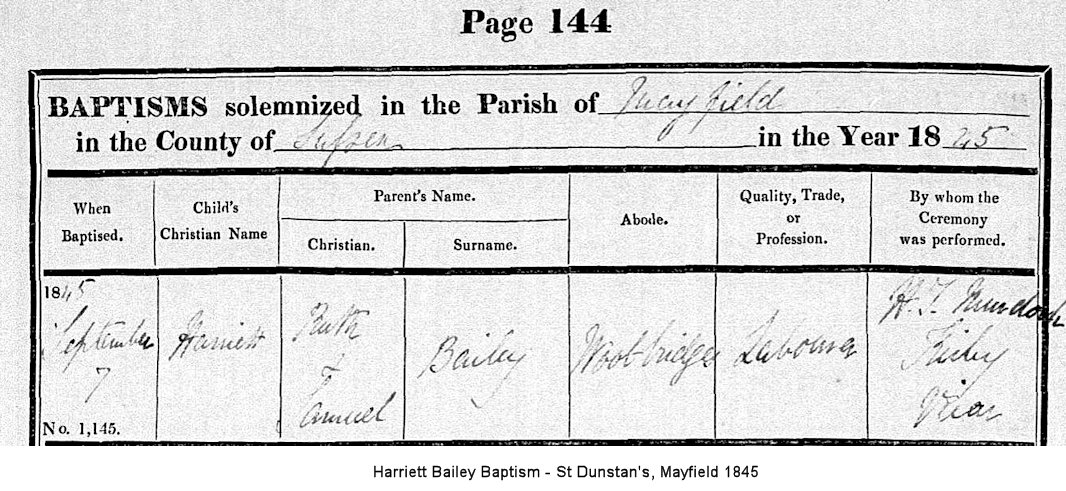 Page 144
BAPTISMS solemnized in the Parish of Mayfield
in the County of Sussex in the Year 1845
When Baptised.
Child's Christian Name
Parent's Name.
Christian.
Surname.
Abode.
Quality, Trade, or Profession.
By whom the Ceremony was performed.
1845
September
7
No. 1,145.
Harriett
Ruth
&
Samuel
Bailey
Labourer
H. T. Murdoch
Kirby
Vicar
Harriett Bailey Baptism - St Dunstan's, Mayfield 1845